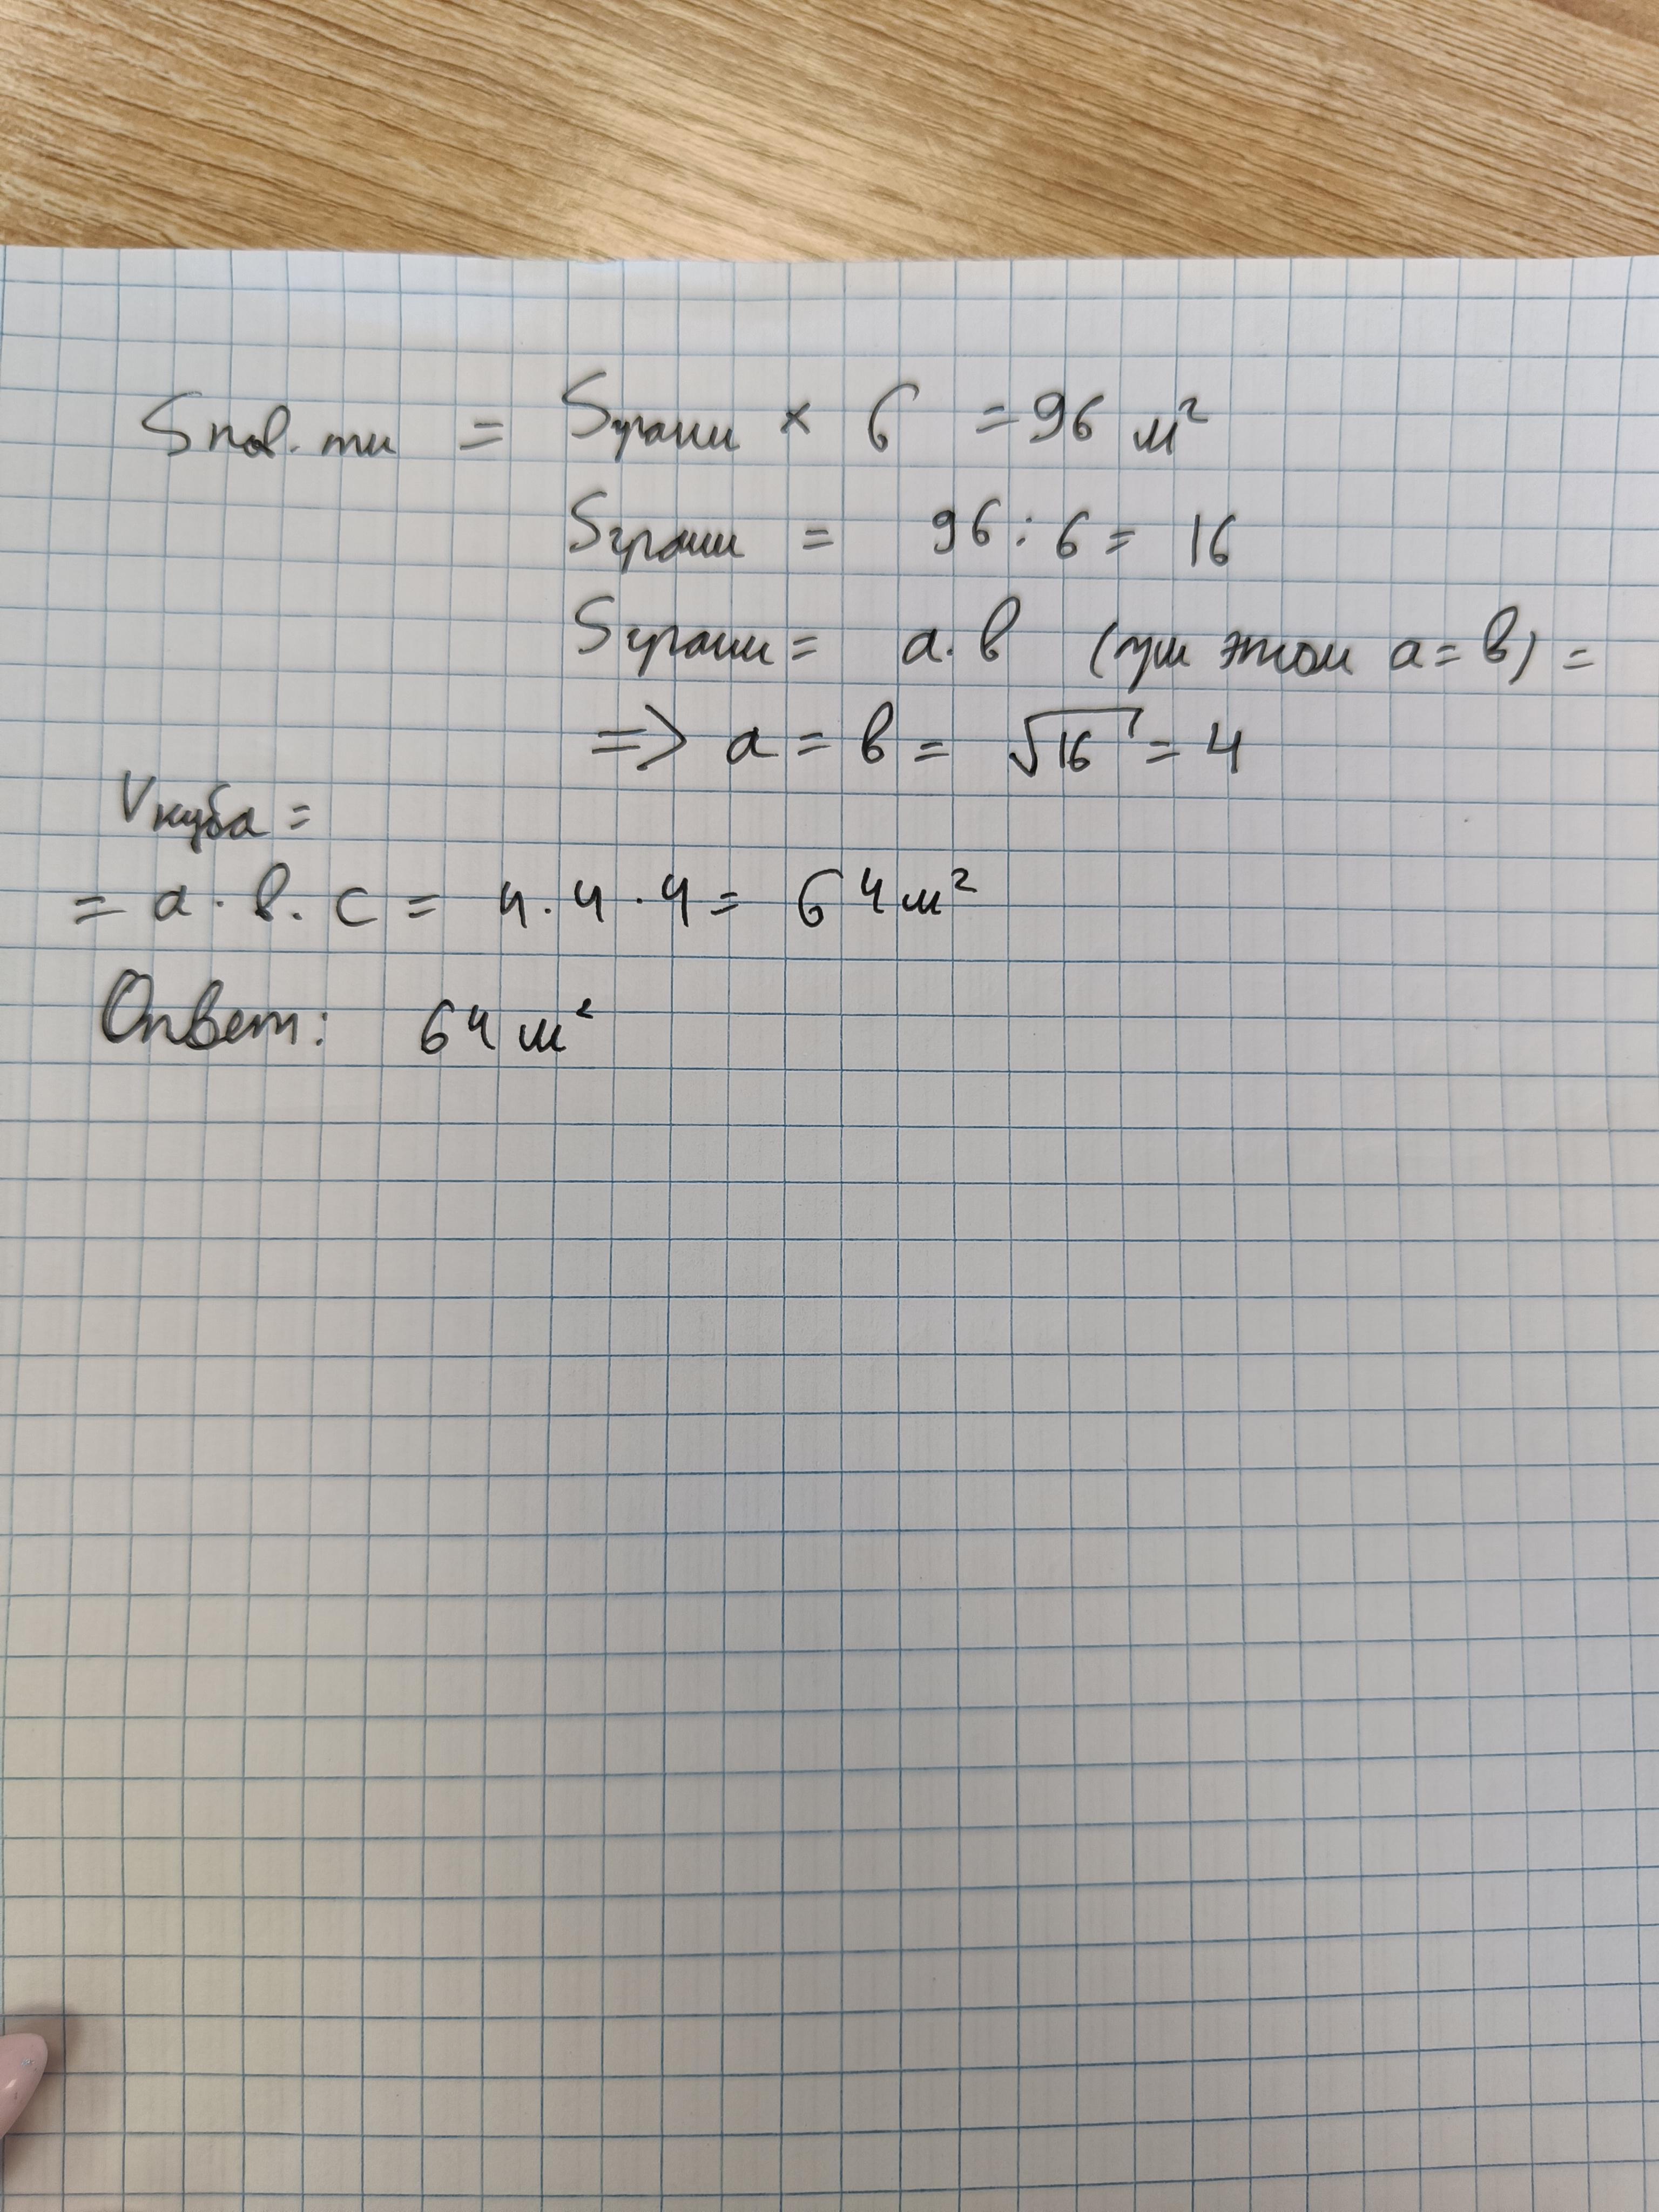 Sпов. ти = Sграни × 6 = 96 м²
Sграни = 96 : 6 = 16
Sграни = a · b (при этом a = b) =
=> a = b = √16 = 4
Vкуба =
= a · b · c = 4 · 4 · 4 = 64 м²
Ответ: 64 м²